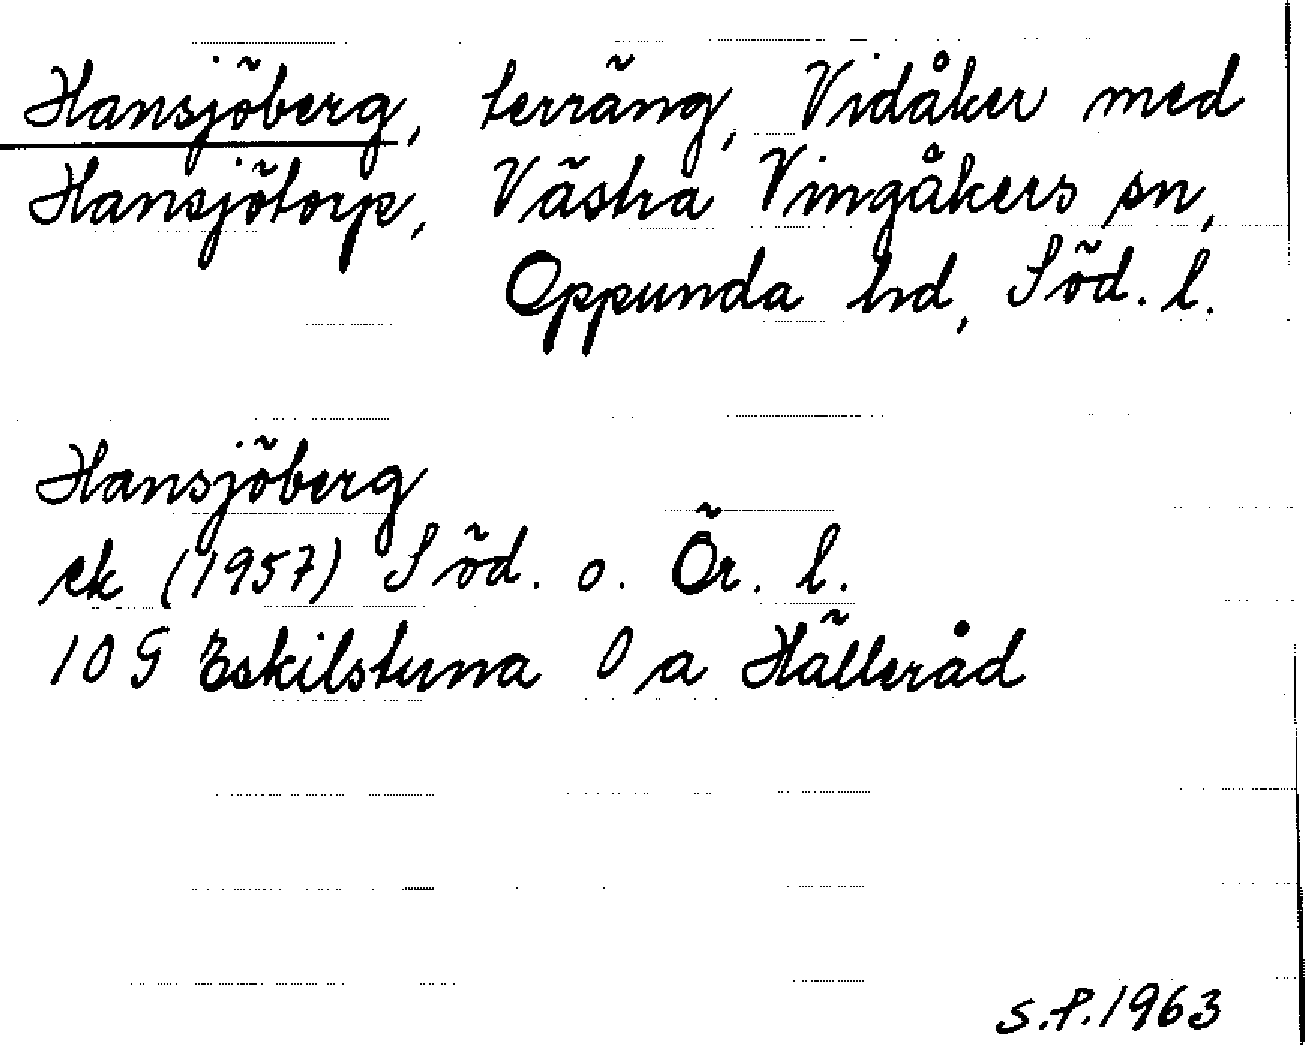 Hansjöberg, terräng, Vidåker med
Hansjötorp, Västra Vingåkers sn,
Oppunda hd, Söd. l.
Hansjöberg
ek (1957) Söd. o. Ör. l.
10 G Eskilstuna 0 a Hälleråd
S.P. 1963